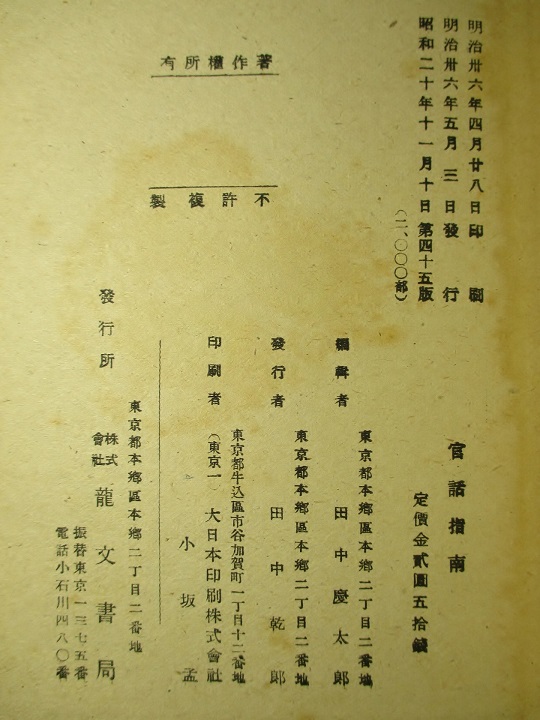 明治卅六年四月廿八日印刷
明治卅六年五月三日發行
昭和二十年十一月十日第四十五版
(二、〇〇〇部)
著作權所有
不許複製
官話指南
定價金貳圓五拾錢
東京都本鄕區本鄕二丁目二番地
編輯者 田中慶太郎
東京都本鄕區本鄕二丁目二番地
發行者 田中乾郎
東京都牛込區市谷加賀町一丁目十二番地
印刷者 (東京一) 大日本印刷株式會社
小坂孟
東京都本鄕區本鄕二丁目二番地
發行所 株式會社 龍文書局
振替東京一三七五番
電話小石川四八〇番